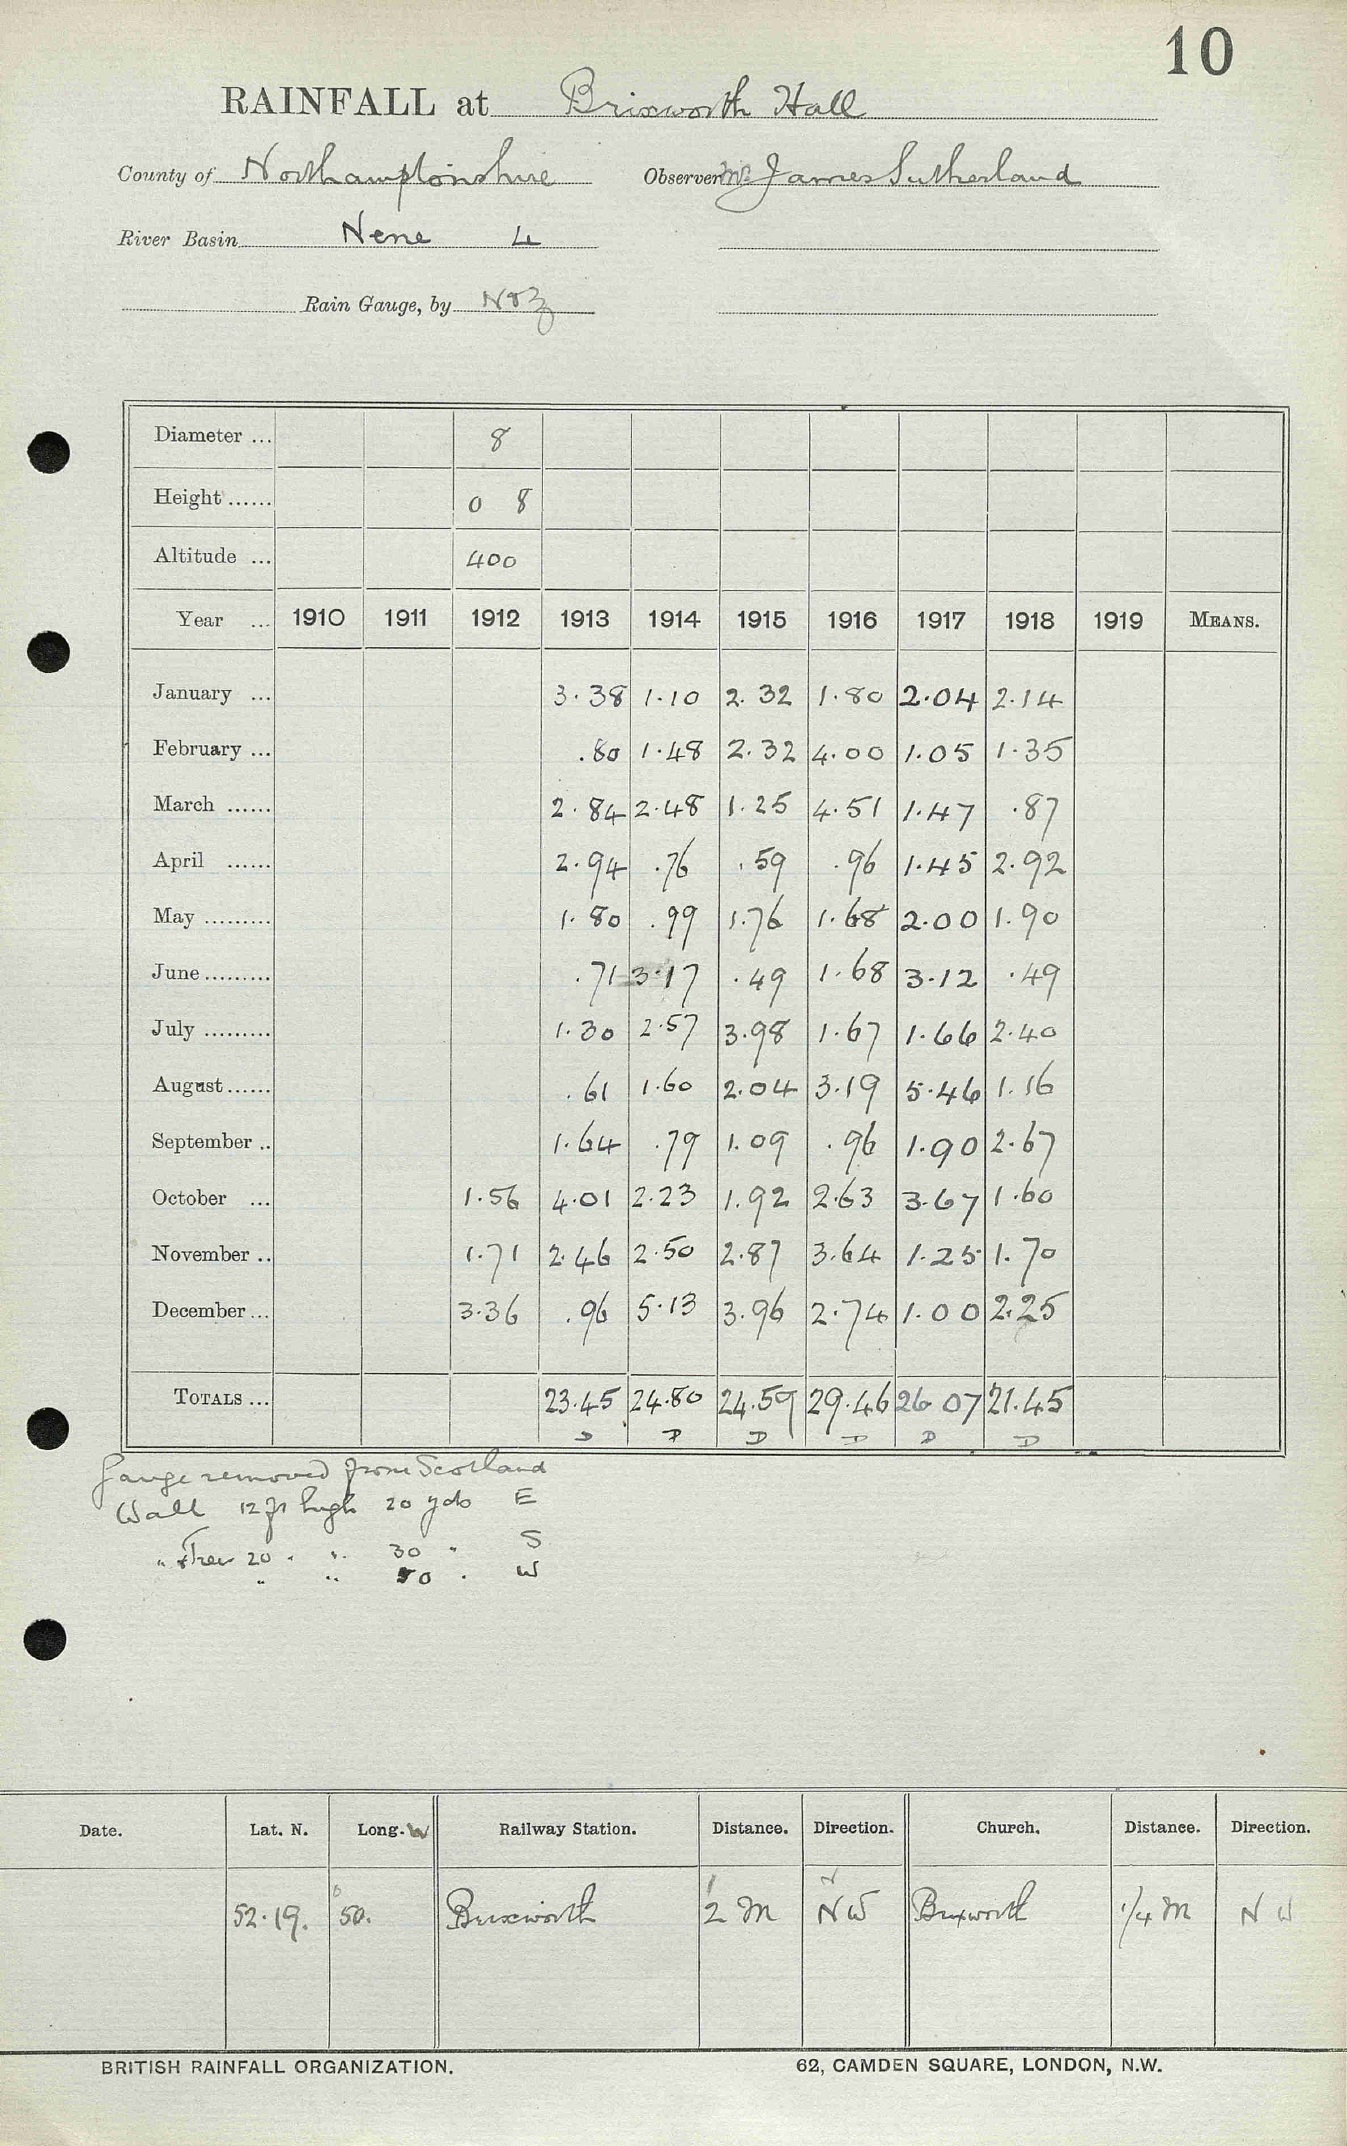 10
RAINFALL at Brixworth Hall
County of Northamptonshire Observer Mr. James Sutherland
River Basin Nene 4
Rain Gauge, by N&Z
Diameter ... 8
Height ...... 0 8
Altitude ... 400
Year ... 1910 1911 1912 1913 1914 1915 1916 1917 1918 1919 MEANS.
January ... 3.38 1.10 2.32 1.80 2.04 2.14
February ... .80 1.48 2.32 4.00 1.05 1.35
March ...... 2.84 2.48 1.25 4.51 1.47 .87
April ...... 2.94 .76 .59 .96 1.45 2.92
May ......... 1.80 .99 1.76 1.68 2.00 1.90
June ......... .71 3.17 .49 1.68 3.12 .49
July ......... 1.30 2.57 3.98 1.67 1.66 2.40
August ...... .61 1.60 2.04 3.19 5.46 1.16
September .. 1.64 .79 1.09 .96 1.90 2.67
October ... 1.56 4.01 2.23 1.92 2.63 3.67 1.60
November .. 1.71 2.46 2.50 2.87 3.64 1.25 1.70
December ... 3.36 .96 5.13 3.96 2.74 1.00 2.25
TOTALS ... 23.45 24.80 24.59 29.46 26 07 21.45
D D D D D D
Gauge removed from Scotland
Wall 12 ft high 20 yds E
" + Trees 20 " " 30 " S
" " 50 " W
Date. Lat. N. Long. W Railway Station. Distance. Direction. Church. Distance. Direction.
52.19. 0 50. Brixworth 1/2 M NW Brixworth 1/4 M N W
BRITISH RAINFALL ORGANIZATION. 62, CAMDEN SQUARE, LONDON, N.W.